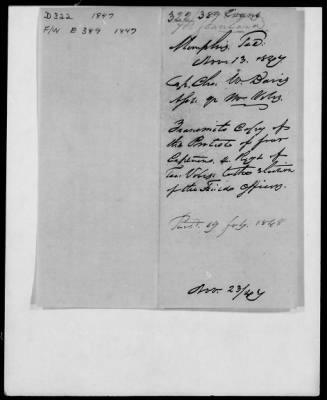 D322 1847
F/W E 389 1847
322 389 Evans
Memphis, Ten.
Nov. 13. 1847
Cap. Chs. W. Davis
Transmits Copy of
the Protests of four
Captains, 4 Regt of
Ten. Vols. to the election
of the Field officers.
19 July. 1848
Nov. 23/47